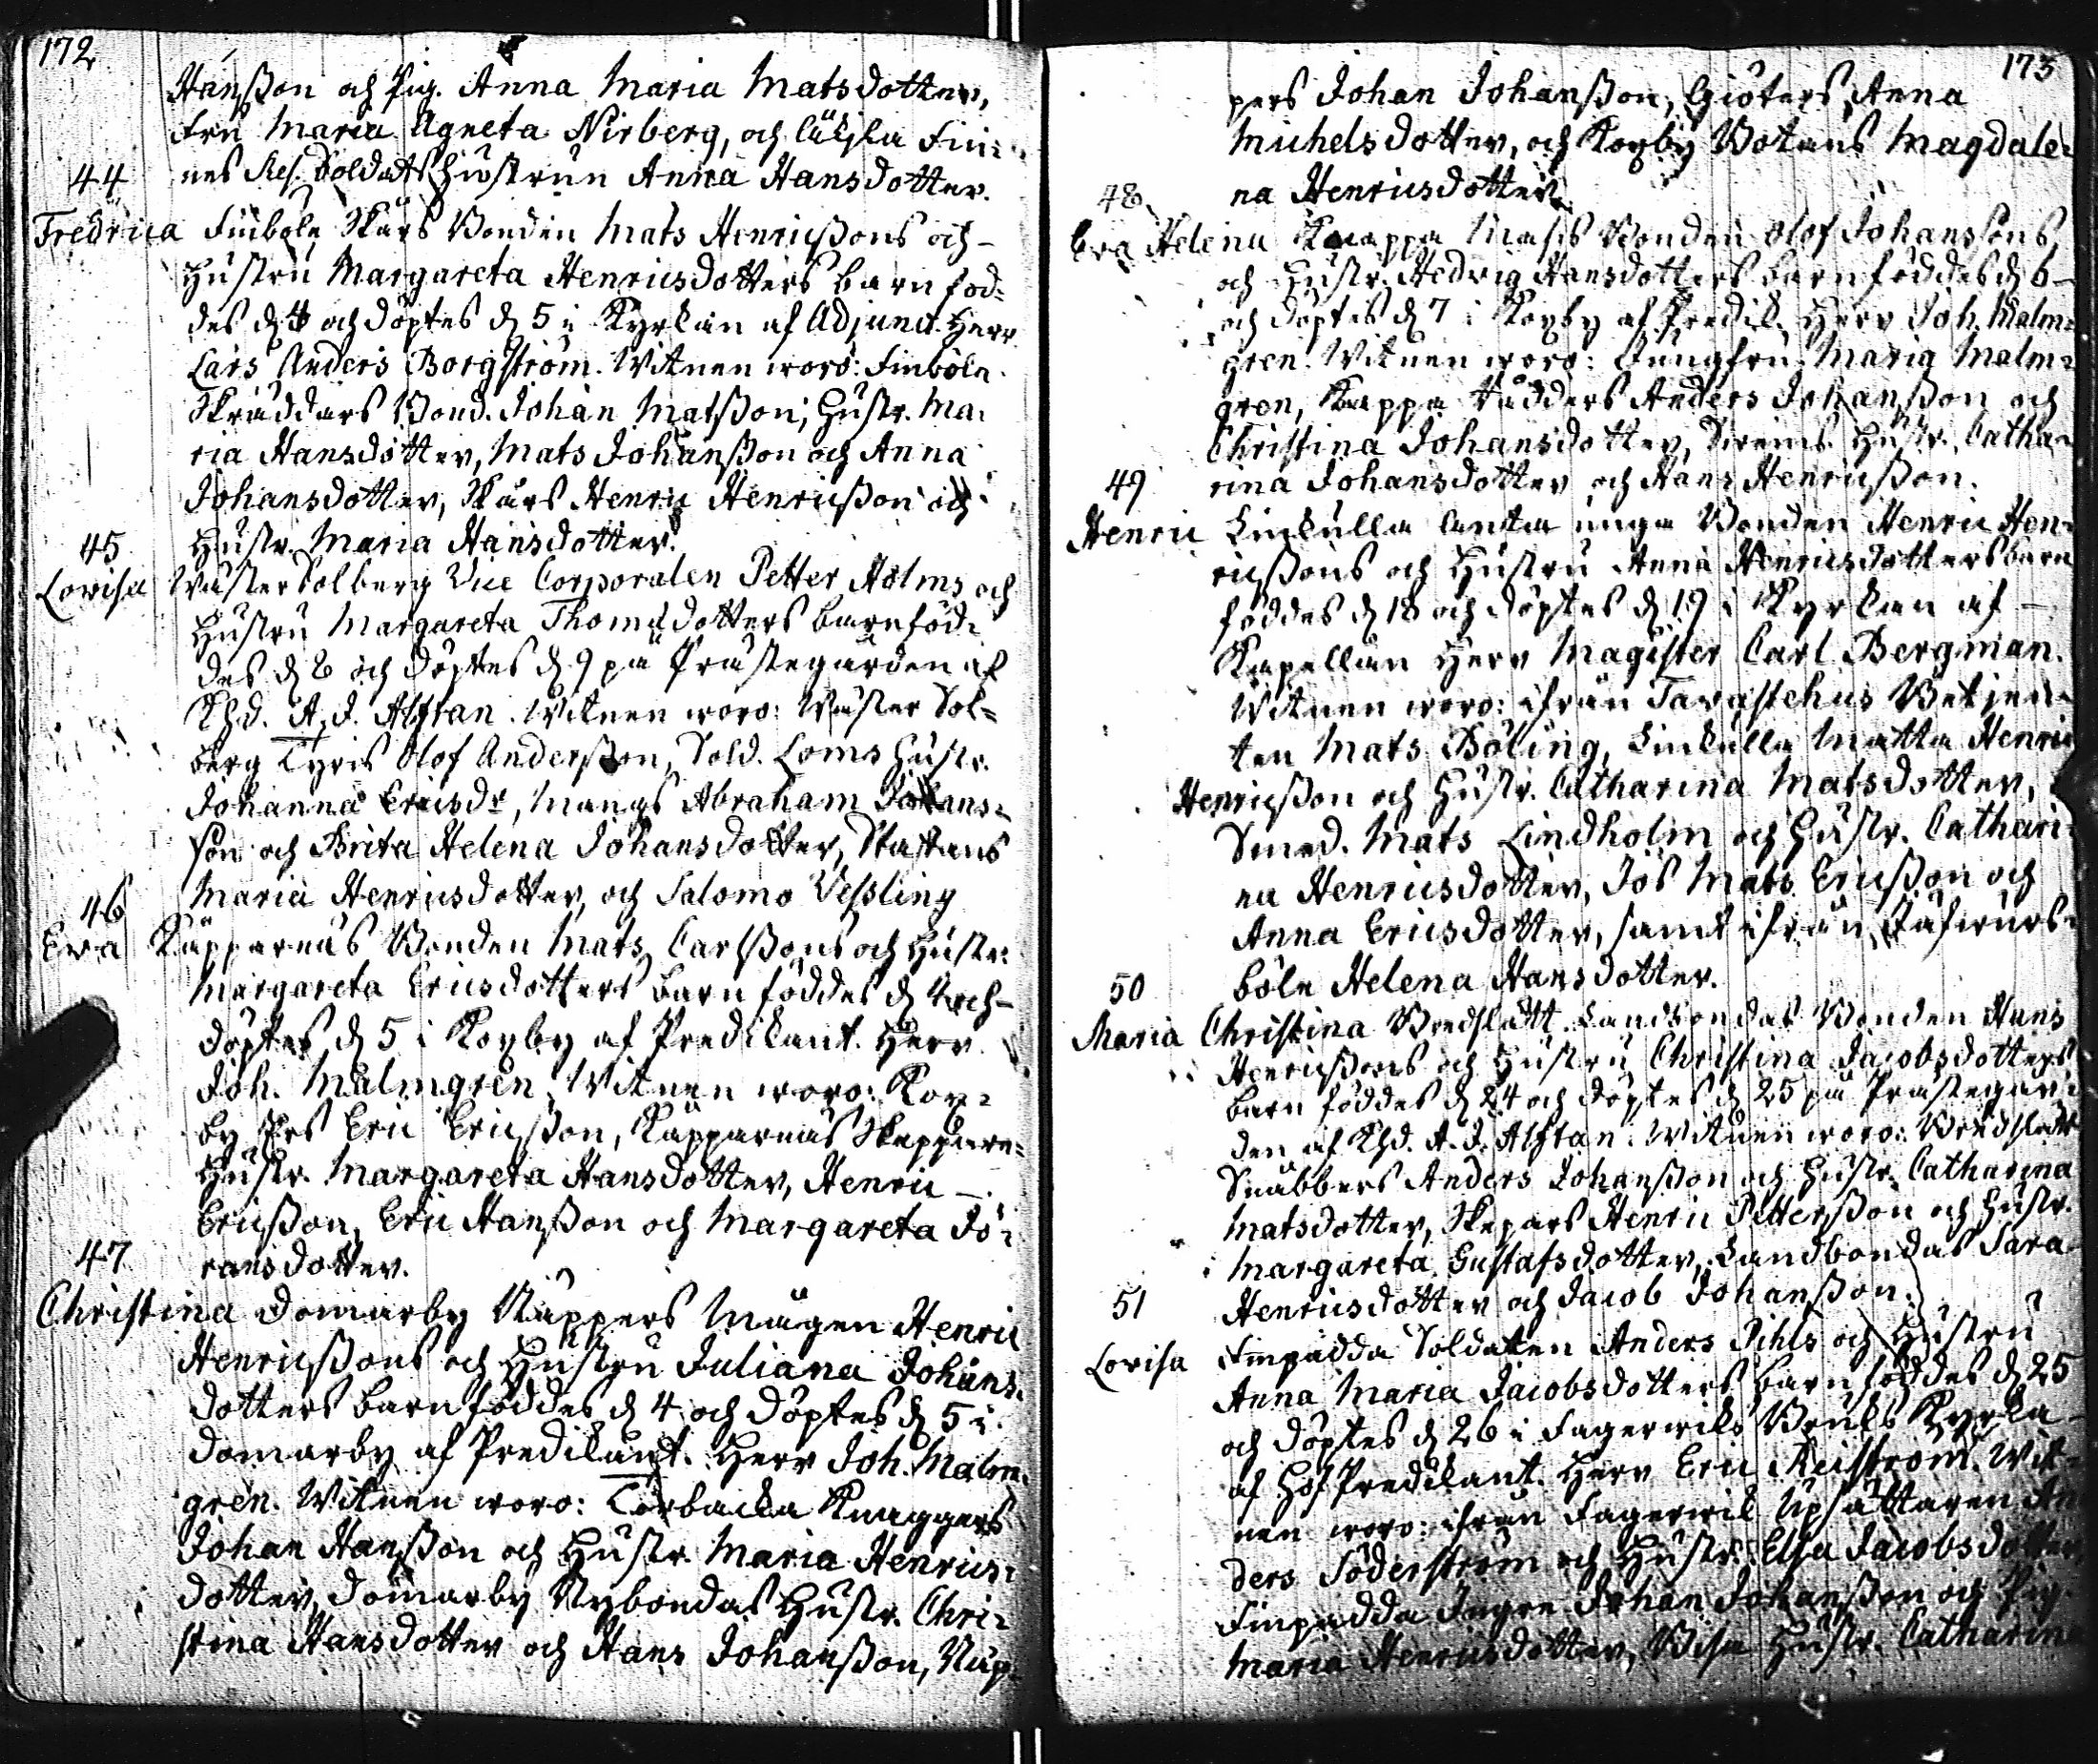 172
Hansson och Pig. Anna Maria Matsdotter,
Fru Maria Agneta Nirberg, och
nes Res. Soldats Hustrun Anna Hansdotter.
44
Fredrica Finböle Skärs Bonden Mats Henricssons och
Hustru Margareta Henricsdotters barn föd-
des d. 4 och döptes d. 5 i Kyrkan af Adjunct. Herr
Lars Anders Borgström. Witnen woro: Finböle
Skräddars Bond. Johan Matsson, Hustr. Ma-
ria Hansdotter, Mats Johansson och Anna
Johansdotter, Skärs Henric Henricsson och
Hustr. Maria Hansdotter.
45
Lovisa Wäster Solberg Vice Corporalen Petter Holms och
Hustru Margareta Thomasdotters barn föd-
des d. 8 och döptes d. 9 på Prästegården af
Khd. A. J. Alftan. Witnen woro: Wäster Sol-
berg Tyris Olof Andersson, Sold. Loms Hustr.
Johanna Ericsdr, Mangs Abraham Johans-
son och Brita Helena Johansdotter,
Maria Henricsdotter, och Salomo Vessling
46
Eva Käpparnäs Bonden Mats Carlssons och Hustr.
Margareta Ericsdotters barn föddes d. 4 och
döptes d. 5 i Kopby af Predikant. Herr
Joh. Malmgren. Witnen woro: Kop-
by Pers Eric Ericsson, Käpparnäs Skeppare
Hustr. Margareta Hansdotter, Henric
Ericsson, Eric Hansson och Margareta Jö-
ransdotter.
47
Christina Domarby Näppers Mågen Henric
Henricssons och Hustru Juliana Johans-
dotters barn föddes d. 4 och döptes d. 5 i
Domarby af Predikant. Herr Joh. Malm-
gren. Witnen woro: Torbacka Knaggers
Johan Hansson och Hustr. Maria Henrics-
dotter, Domarby Nybondas Hustr. Chri-
stina Hansdotter och Hans Johansson, Näp-
173
pers Johan Johansson, Giöters Anna
Michelsdotter, och Kopby Botans Magdale-
na Henricsdotter.
48
Eva Helena Knappa Bonden Olof Johanssons
och Hustr. Hedvig Hansdotters barn föddes d. 6
och döptes d. 7 i Kopby af Predik. Herr Joh. Malm-
gren. Witnen woro: Jungfru Maria Malm-
gren, Anders Johansson och
Christina Johansdotter, Hustr. Catha-
rina Johansdotter och Hans Henricsson.
49
Henric Linkulla unga Bonden Henric Hen-
ricssons och Hustru Anna Henricsdotters barn
föddes d. 18 och döptes d. 19 i Kyrkan af
Kapellan Herr Magister Carl Bergman.
Witnen woro: ifrån Tavastehus Betjen-
ten Mats Böling, Linkulla Matta Henric
Henricsson och Hustr. Catharina Matsdotter,
Smed. Mats Lindholm och Hustr. Cathari-
na Henricsdotter, Jös Mats Ericsson och
Anna Ericsdotter, samt ifrån
böle Helena Hansdotter.
50
Maria Christina Bredslätt Landbondas Bonden Hans
Henricssons och Hustru Christina Jacobsdotters
barn föddes d. 24 och döptes d. 25 på Prästegår-
den af Khd. A. J. Alftan. Witnen woro: Bredslätt
Snäbbers Anders Johansson och Hustr. Catharina
Matsdotter, Skepars Henric Pettersson och Hustr.
Margareta Gustafsdotter, Landbondas Sara
Henricsdotter och Jacob Johansson.
51
Lovisa Finpadda Soldaten Anders Pihls och Hustru
Anna Maria Jacobsdotters barn föddes d. 25
och döptes d. 26 i Fagerwiks Bruks Kyrka
af Hof Predikant. Herr Eric Reiström. Wit-
nen woro: ifrån Fagerwik Upsättaren An-
ders Söderström och Hustr. Elsa Jacobsdotter,
Finpadda Ingre Johan Johansson och Pig.
Maria Henricsdotter, Hustr. Catharina